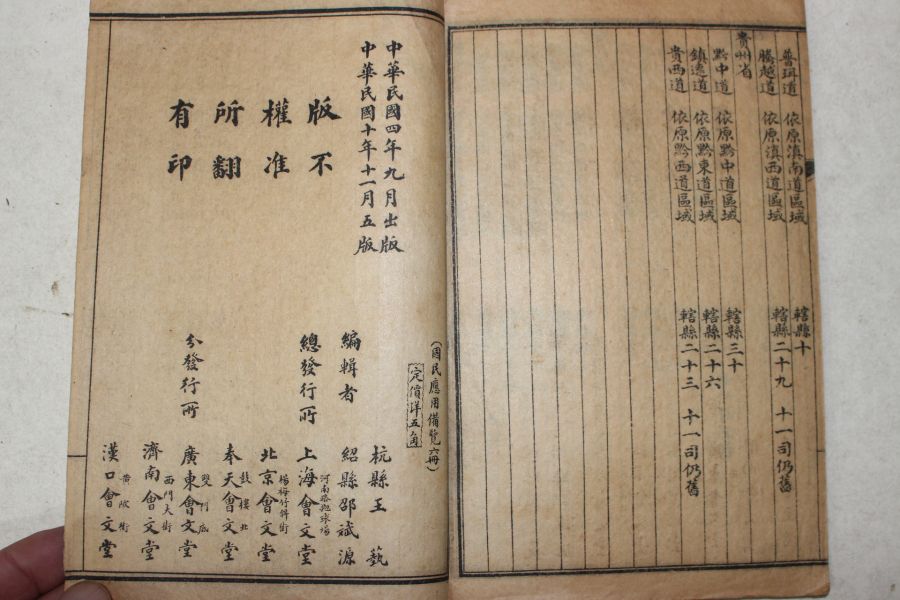 普珥道 依原滇南道區域 轄縣十
騰越道 依原滇西道區域 轄縣二十九 十一司仍舊
貴州省
黔中道 依原黔中道區域 轄縣三十
鎮遠道 依原黔東道區域 轄縣二十六
貴西道 依原黔西道區域 轄縣二十三 十一司仍舊
(國民應用備覽六冊)
定價洋五角
中華民國四年九月出版
中華民國十年十一月五版
版權所有
不准翻印
編輯者
杭縣王藝
紹縣邵斌源
總發行所
上海會文堂
河南路抛球場
分發行所
北京會文堂
楊梅竹斜街
奉天會文堂
鼓樓北
廣東會文堂
雙門底
濟南會文堂
西門大街
漢口會文堂
黃陂街